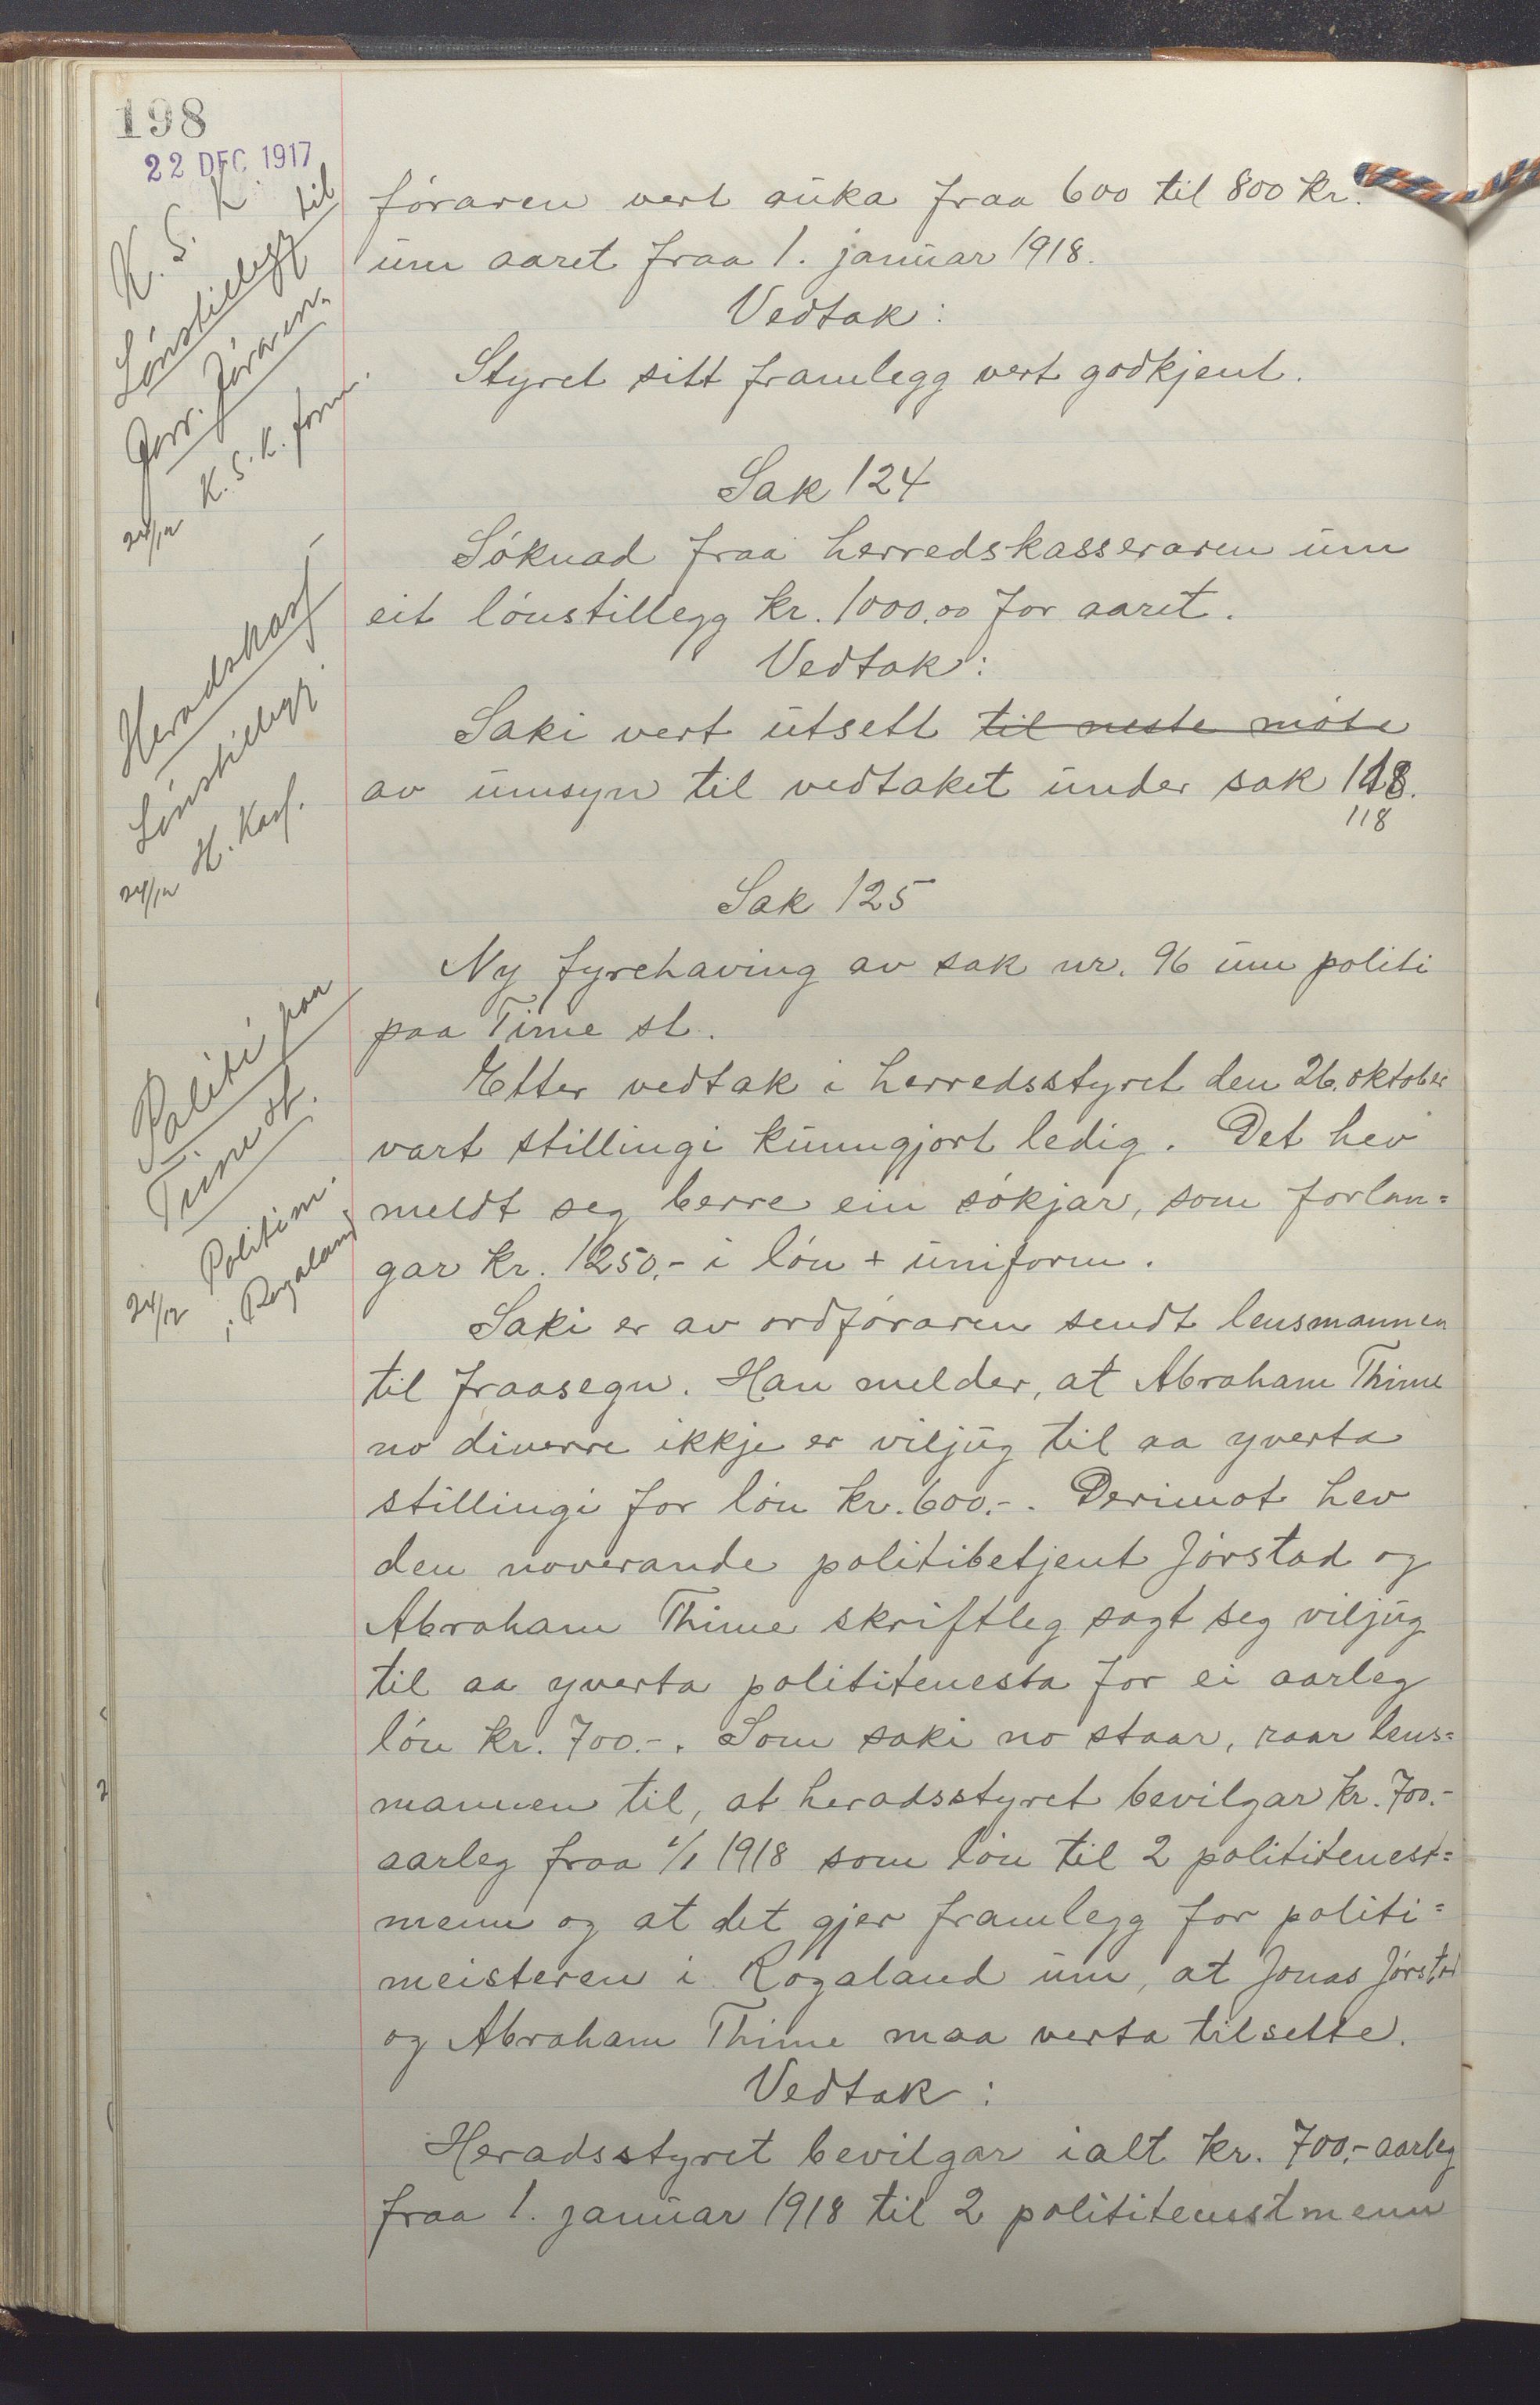 198
22 DEC 1917
K. S. K. til
Lónstillegg
forr. fóraren.
24/12 K. S. K. form.
fóraren vert auka fraa 600 til 800 kr.
um aaret fraa 1. januar 1918.
Vedtak:
Styret sitt framlegg vert godkjent.
Sak 124
Heradskass.
Lónstillegg.
24/12 H. Kass.
Sóknad fraa herredskasseraren um
eit lónstillegg kr. 1000.00 for aaret.
Vedtak:
Saki vert utsett til neste móte
av umsyn til vedtaket under sak 118.
118
Sak 125
Politi paa
Time st.
24/12 Politim.
i Rogaland
Ny fyrehaving av sak nr. 96 um politi
paa Time st.
Etter vedtak i herredsstyret den 26. oktober
vart stillingi kunngjort ledig. Det hev
meldt seg berre ein sókjar, som forlan=
gar kr. 1250.- i lón + uniform.
Saki er av ordfóraren sendt lensmannen
til fraasegn. Han melder, at Abraham Thime
no diverre ikkje er viljug til aa yverta
stillingi for lón kr. 600.-. Derimot hev
den noverande politibetjent Jórstad og
Abraham Thime skriftleg sagt seg viljug
til aa yverta polititenesta for ei aarleg
lón kr. 700.-. Som saki no staar, raar lens=
mannen til, at heradsstyret bevilgar kr. 700.-
aarleg fraa 1/1 1918 som lón til 2 polititenest=
menn og at det gjer framlegg for politi=
meisteren i Rogaland um, at Jonas Jórstad
og Abraham Thime maa verta tilsette.
Vedtak:
Heradsstyret bevilgar ialt kr. 700.- aarleg
fraa 1. januar 1918 til 2 polititenestmenn